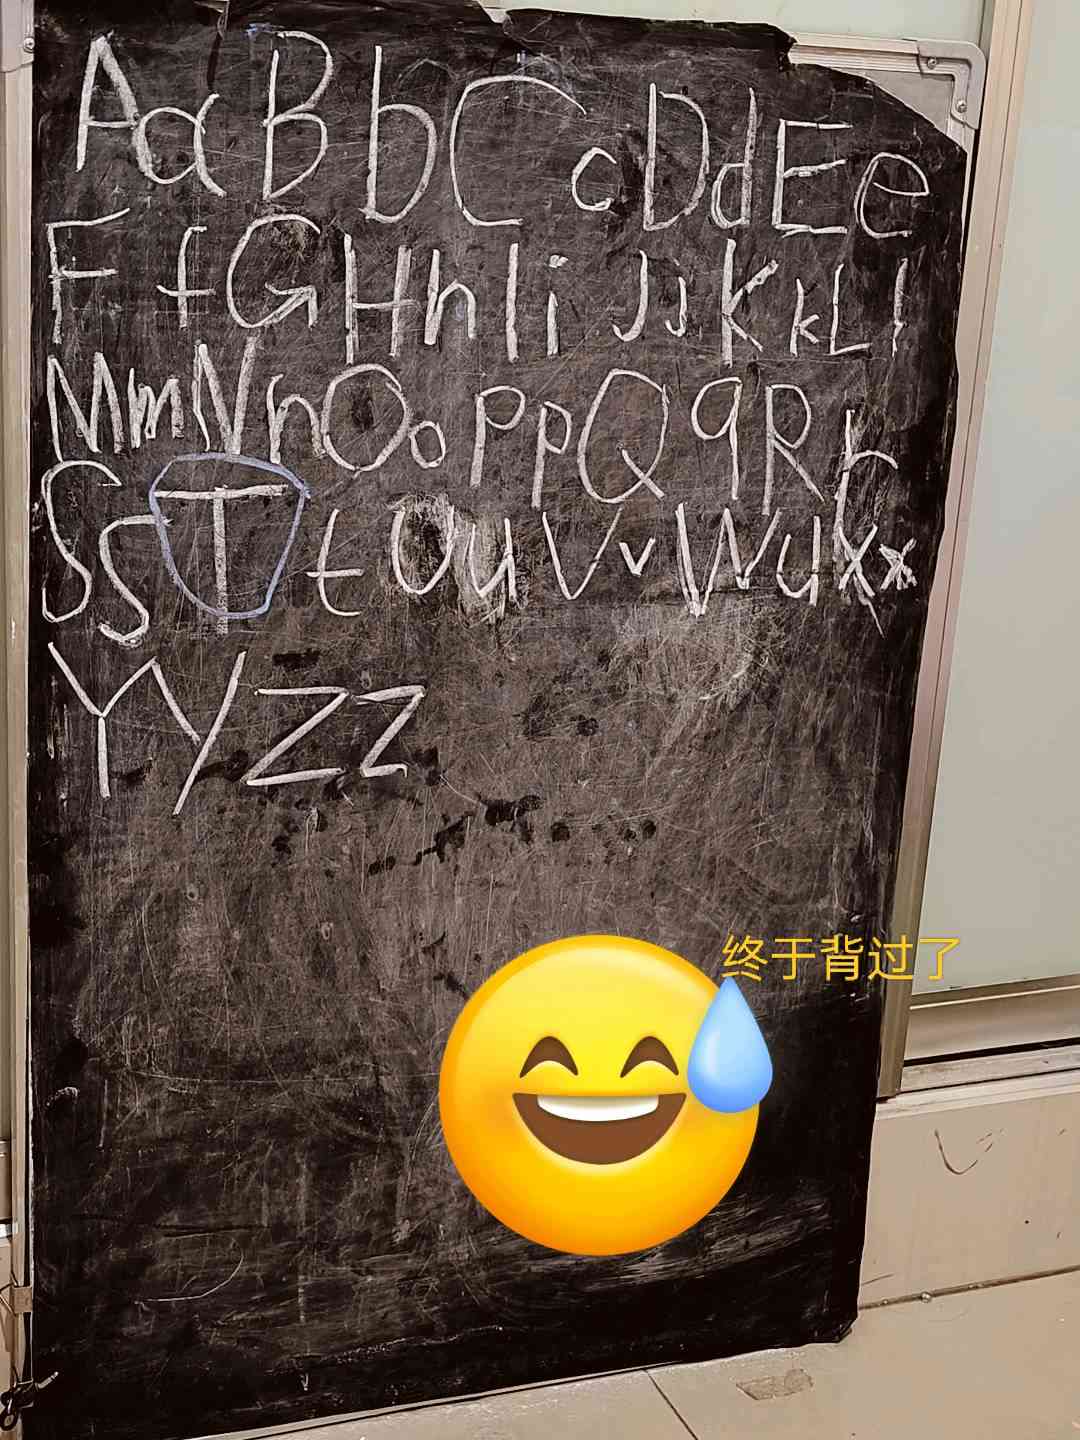 Aa Bb Cc Dd Ee
Ff Gg Hh Ii Jj Kk Ll
Mm Nn Oo Pp Qq Rr
Ss Tt Uu Vv Wu Xx
Yy Zz
终于背过了